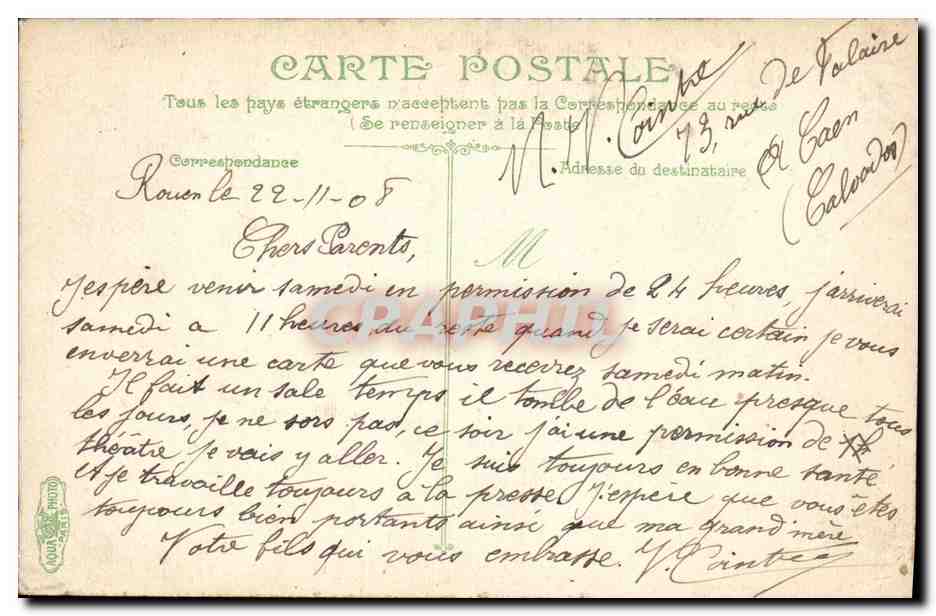 CARTE POSTALE
Tous les pays étrangers n'acceptent pas la Correspondance au recto
(Se renseigner à la Poste)
Correspondance
Adresse du destinataire
M.
73, rue de Falaise
à Caen
(Calvados)
M
Rouen le 22-11-08
Chers Parents,
J'espère venir samedi en permission de 24 heures, j'arriverai
samedi a 11 heures du reste quand je serai certain je vous
enverrai une carte que vous recevrez samedi matin.
Il fait un sale temps il tombe de l'eau presque tous
les jours, je ne sors pas, ce soir j'ai une permission de
théâtre je vais y aller. Je suis toujours en bonne santé
et je travaille toujours à la presse j'espère que vous êtes
toujours bien portants ainsi que ma grand mère
Votre fils qui vous embrasse.
AQUA PHOTO
PARIS
CPAPHIL